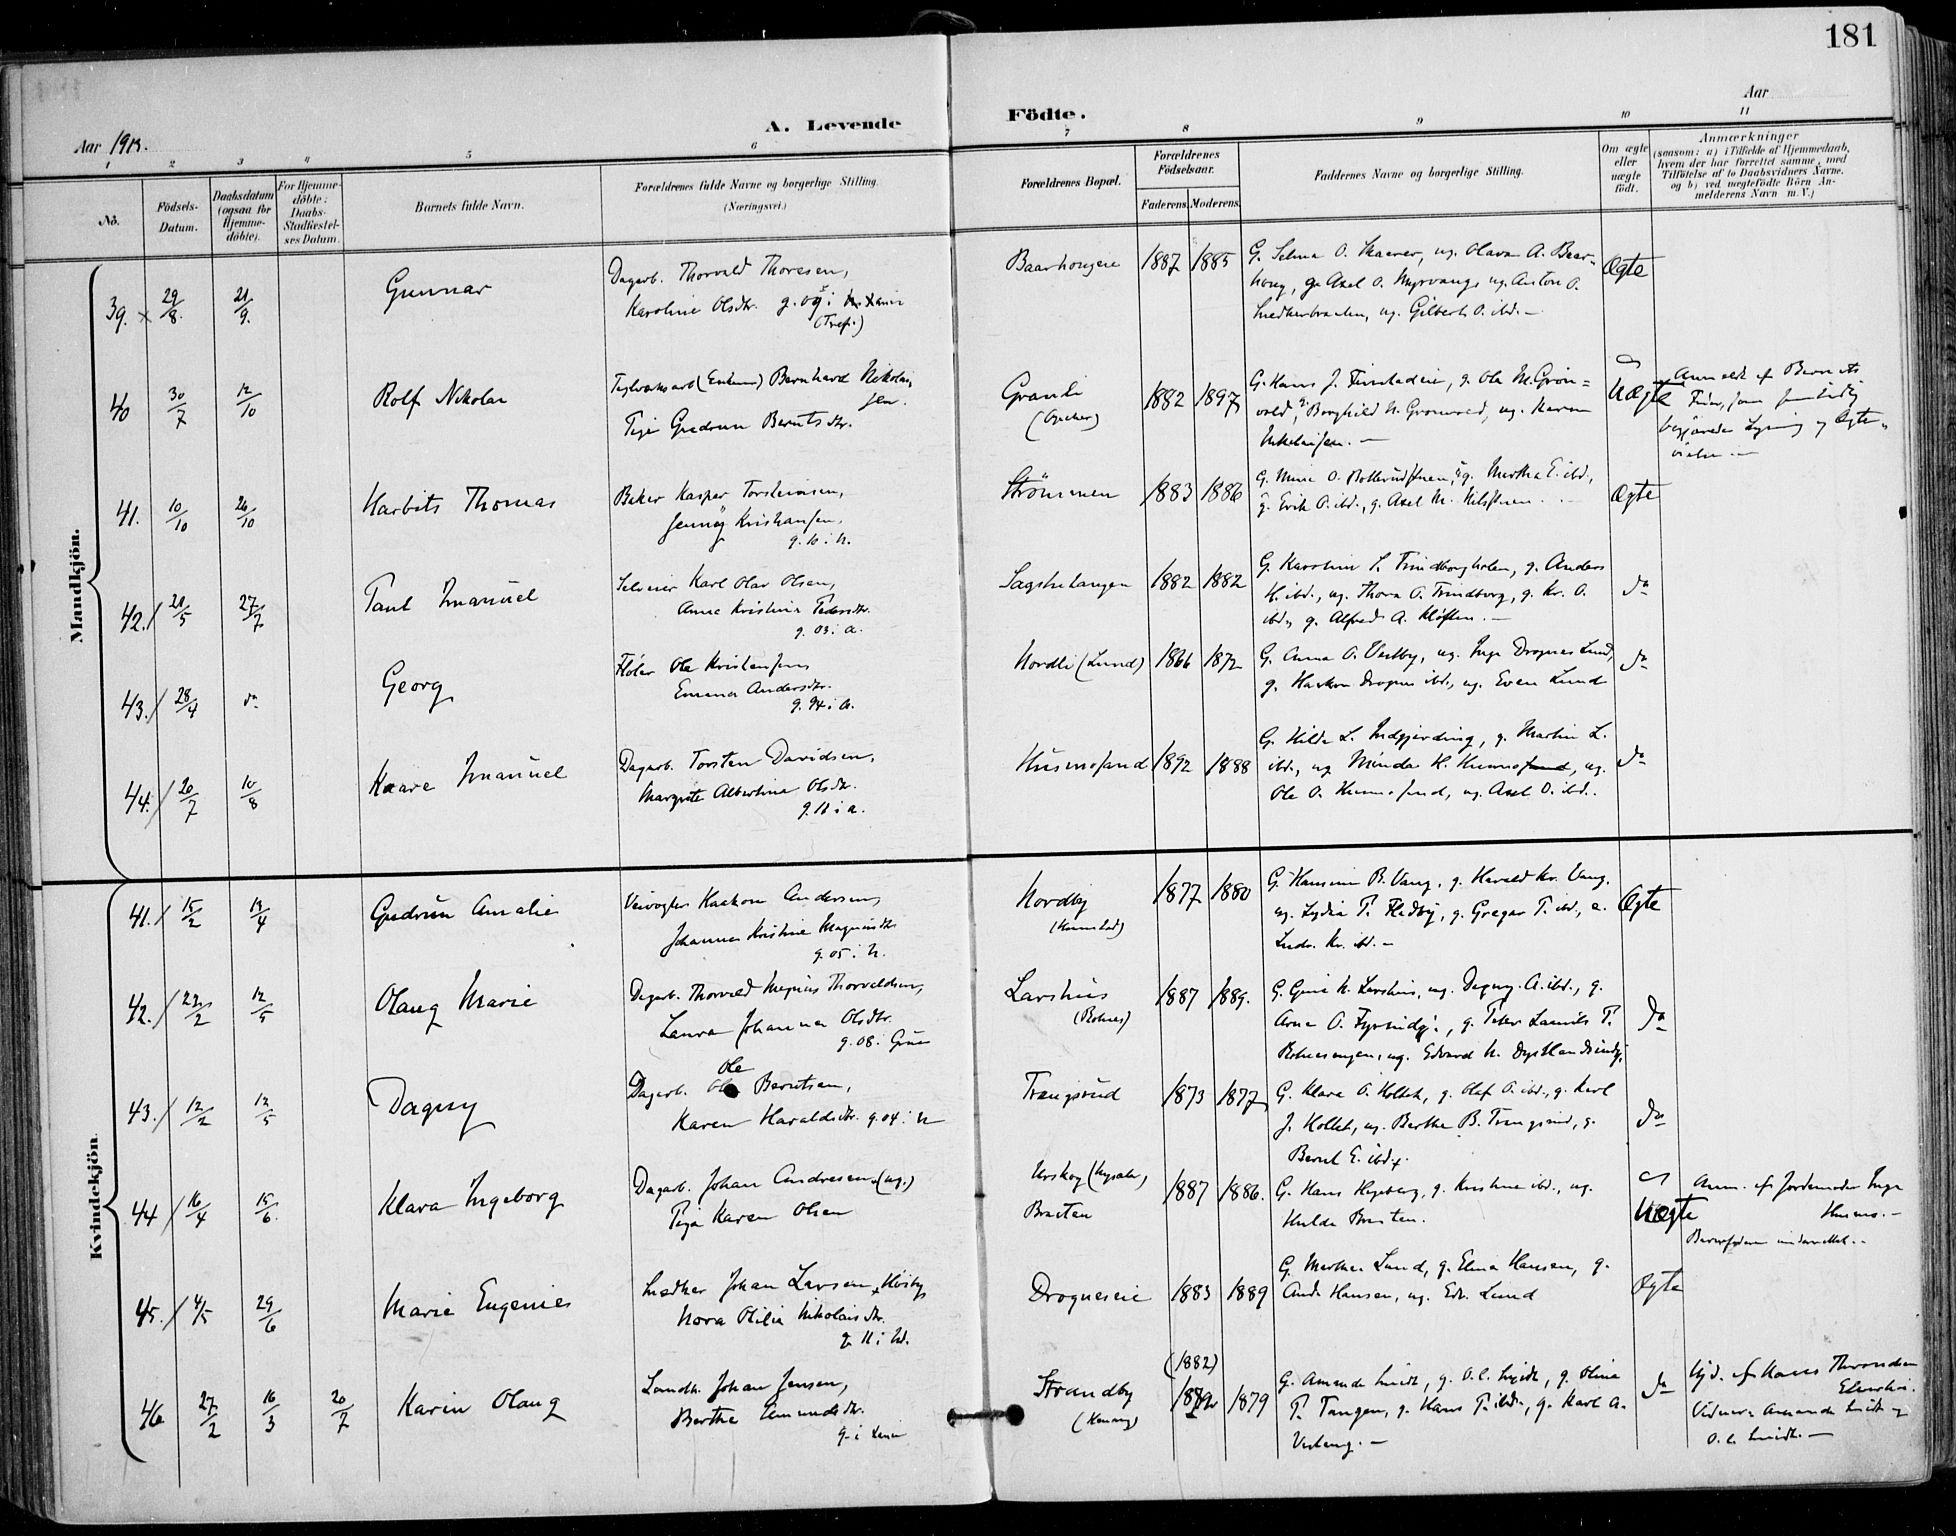 181
Aar 1913.
A. Levende
Födte.
Aar
1 2 3 4 5 6 7 8 9 10 11
Nô.
Födsels-
Datum.
Daabsdatum
(ogsaa for
Hjemme-
döbte).
For Hjemme-
döbte:
Daabs-
Stadfæstel-
ses Datum.
Barnets fulde Navn.
Forældrenes fulde Navne og borgerlige Stilling.
(Næringsvei.)
Forældrenes Bopæl.
Forældrenes
Födselsaar.
Faderens. Moderens.
Faddernes Navne og borgerlige Stilling.
Om ægte
eller
uægte
födt.
Anmærkninger
(saasom: a) i Tilfælde af Hjemmedaab,
hvem der har forrettet samme, med
Tilföielse af to Daabsvidners Navne.
og b) ved uægtefödte Börn An-
melderens Navn m. V.)
Mandkjön.
39. x 29/8. 21/9. Gunnar
Dagarb. Thorvald Thoresen,
Karoline Olsdtr. g. 09 i
(Tref.)
Baarhougeie 1887 1885
G. Selma O. Skaarer, ug. Olava A. Baar-
houg, g. Axel O. Myrvang, ug. Anton O.
ug. Gilbert O. ibd. —
Ægte
40 30/7 12/10 Rolf Nikolai
Teglverksarb. (Enkem.) Bernhard Nikolai
sen.
Pige Gudrun Berntsdtr.
Granli
1882 1897
G. Hans J. Finstadeie, g. Ola M. Grön-
vold, Borghild N. Grönvold, ug. Karen
Nikolaisen. —
Uægte
Anmeldt af Barnets
Fader, som samtidig
begjærede Lysning og Ægte-
vielse. —
41. 10/10 26/10 Harbits Thomas
Baker Kasper Torsteinsen,
Jenny Kristiansen,
g. 10 i N.
Strömmen 1883 1886
G. Mina O. g. Martha E. ibd.,
g. Erik O. ibd., g. Axel M. Nilssen. —
Ægte
42. / 21/5 27/7 Paul Imanuel
Seleier Karl Olav Olsen,
Anna Kristina Pedersdtr.
g. 03 i A.
Sagstutangen 1882 1882
G. Karoline L. Trindborgholen, g. Anders
H. ibd., ug. Thora O. Trindborg, g. Kr. O.
ibd., g. Alfred A. Klöften. —
do
43. / 28/4 do Georg
Flöter Ole Kristensen
Emma Andersdtr.
g. 94 i A.
Nordli (Lund) 1866 1872
G. Anna O. Vestby, ug. Inga Drognes Lund,
g. Haakon Drognes ibd., ug. Even Lund
do
44. / 20/7 10/8 Kaare Imanuel
Dagarb. Torsten Davidsen,
Margrete Albertina Olsdtr.
g. 11 i A.
Husmosand 1892 1888
G. Hilda L. Indgjerding, g. Martin L.
ibd., ug. Minda H. Husmosand, ug.
Ole O. Husmosand, ug. Axel O. ibd.
do
Kvindekjön.
41. / 15/2 13/4 Gudrun Amalie
Veivogter Haakon Andersen,
Johanna Kristine Magnusdtr.
g. 05 i N.
Nordby
1877 1880
G. Hansine B. Vang, g. Harald Kr. Vang,
ug. Lydia T. Hedby, g. Gregar T. ibd., e.
Ludv. Kr. ibd. —
Ægte
42. / 22/2 12/5 Olaug Marie
Dagarb. Thorvald Magnus Thorvaldsen,
Laura Johanna Olsdtr.
g. 08 i Grue
Larshus
(Rolnes)
1887 1889.
G. Gina K. Larshus, ug. Dagny A. ibd., g.
Arne O. g. Peter Laurits T.
ug. Edvard N.
do
43. / 12/2 12/5 Dagny
Ole
Dagarb. Berntsen,
Karen Haraldsdtr. g. 04 i N
Trangsrud 1873 1877
G. Klara O. Holtet, g. Olaf O. ibd., g. Karl
J. Holtet, ug. Berthe B. Trangsrud, g.
Bernt E. ibd.
do
44 / 16/4 15/6. Klara Ingeborg
Dagarb. Johan Andresen (ug.)
Pige Karen Olsen
Urskog
Braaten
1887 1886.
G. Hans Hegeberg, g. Kristine ibd., ug.
Hulda Braaten.
Uægte
Anm. af Jordemoder Inga
Husmo. —
Barnefaderen underrettet. —
45. / 4/5 29/6 Marie Eugenie
Snedker Johan Larsen
Nora Otilie Nikolaisdtr.
g. 11 i Nd.
Drogneseie 1883 1889
G. Marthe Lund, g. Elna Hansen, g.
Andr. Hansen, ug. Edv. Lund
Ægte
46 27/2 16/3 20/7 Karin Olaug
Landh. Johan Jensen,
Berthe Amundsdtr.
g. i
Strandby
(1882)
1879
G. Amanda Smidt, g. O. C. Smidt, g. Olina
T. Tangen, g. Hans T. ibd., g. Karl A.
do
Hjd. af Hans Throndsen
Vidner: Amanda Smidt og
O. C. Smidt. —